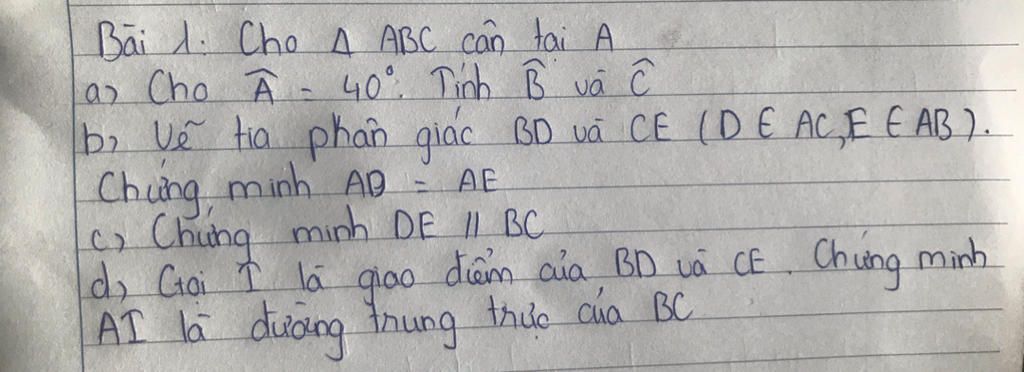 Bài 1: Cho Δ ABC cân tại A
a) Cho Â = 40°. Tính B̂ và Ĉ
b) Vẽ tia phân giác BD và CE (D ∈ AC, E ∈ AB).
Chứng minh AD = AE
c) Chứng minh DE // BC
d) Gọi I là giao điểm của BD và CE. Chứng minh
AI là đường trung trực của BC